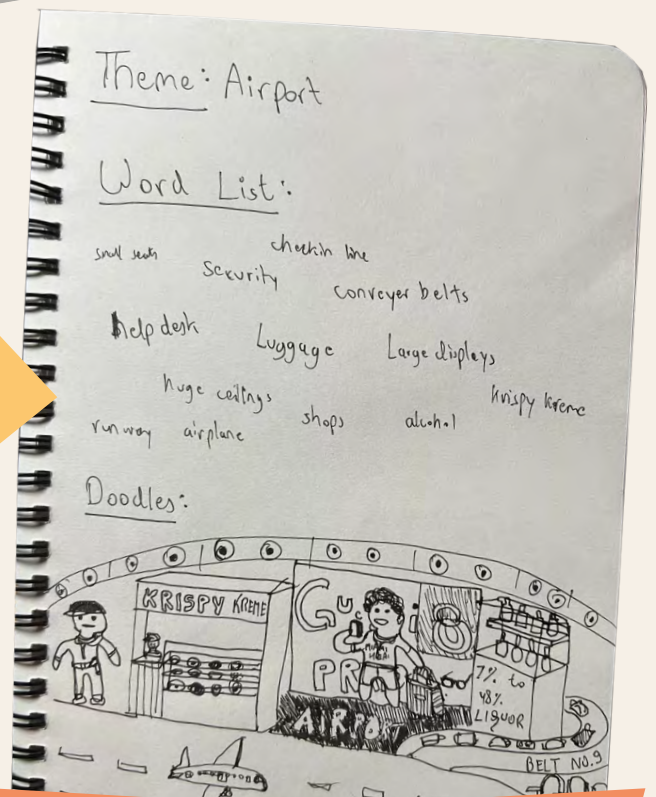 Theme: Airport
Word List:
small seats
checkin line
security
conveyer belts
help desk
Luggage
Large displays
huge ceilings
Krispy Kreme
shops
alcohol
runway airplane
Doodles:
KRISPY KREME
GU
PR
AIRPOR
7% to
48%
LIQUOR
BELT NO.9